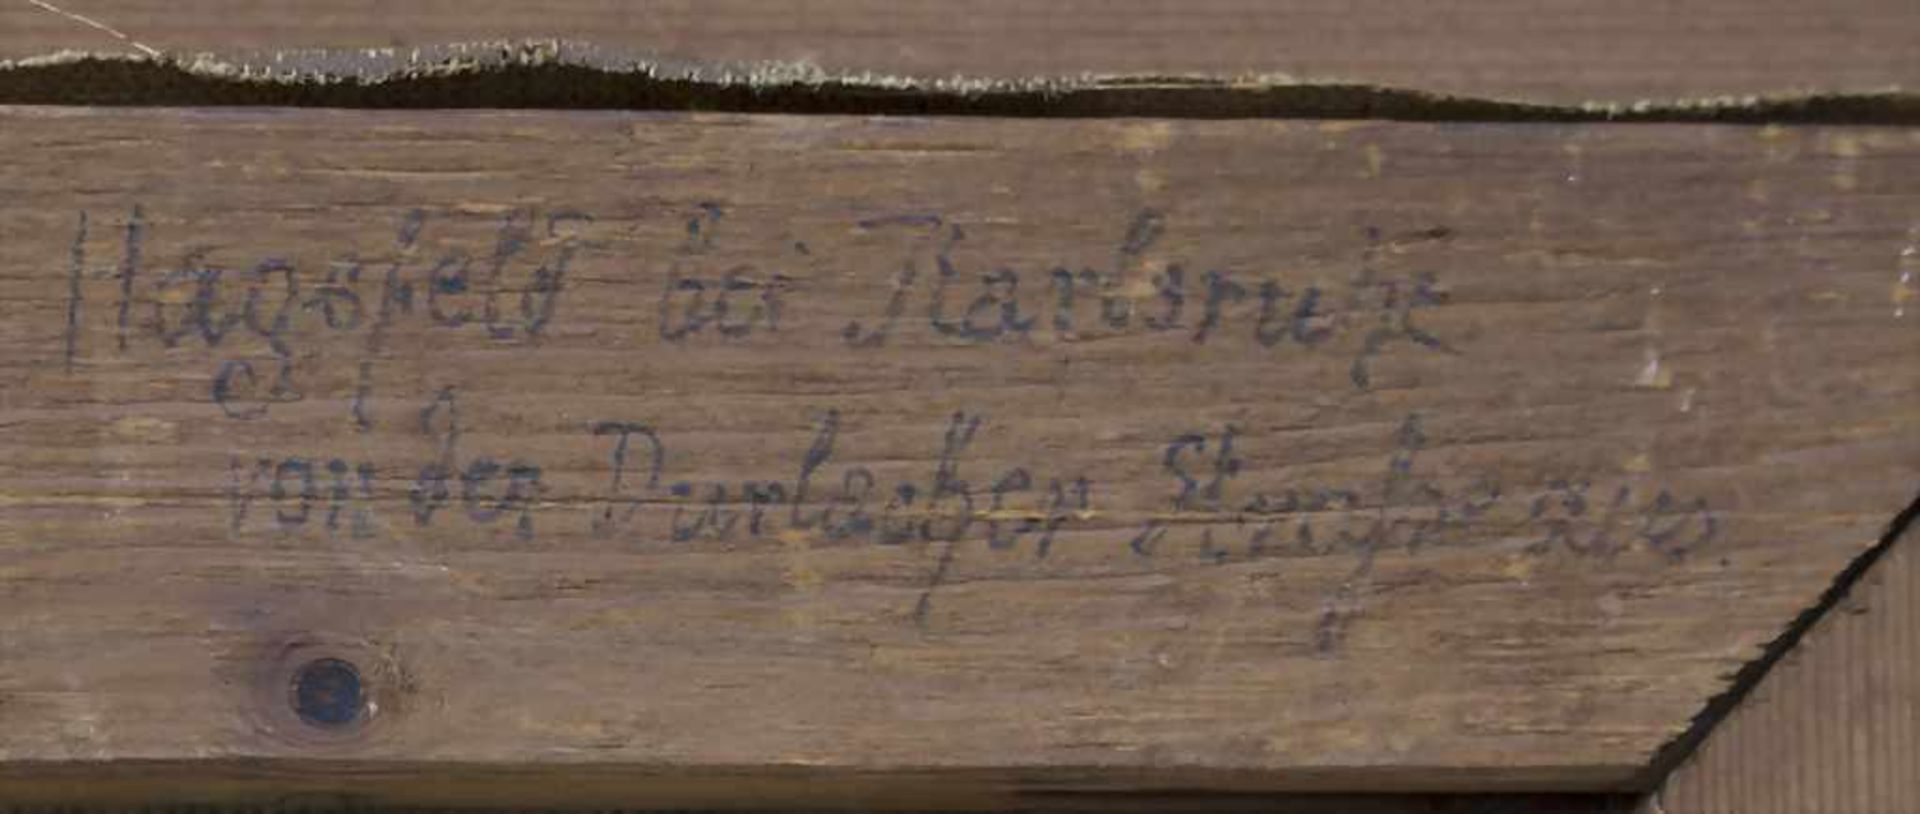 Hagsfeld bei Karlsruhe
von der Durlacher Straße aus.